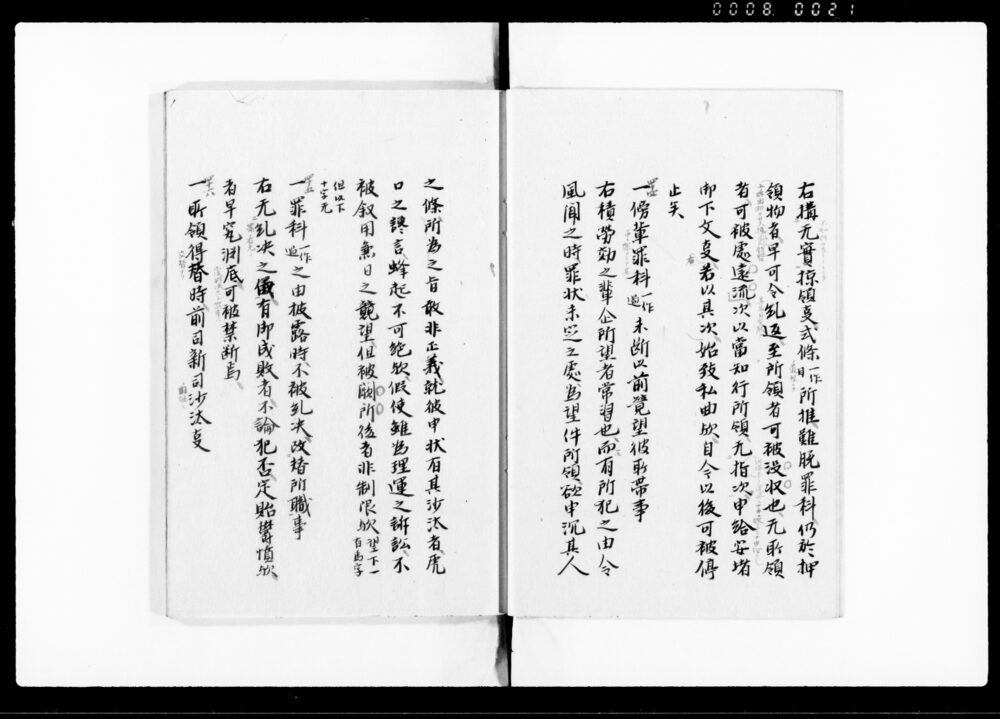 0008 0021
右搆无實掠領叓式條一作目所推難脱罪科仍於押
領物者早可令糺返至所領者可被没収也无所領
者可被處遠流次以當知行所領无指次申給安堵
御下文叓若以其次始致私曲欤自今以後可被停
止矣
一傍輩罪科一作過未断以前競望彼所帯事
右積勞効之輩企所望者常習也而有所犯之由令
風聞之時罪状未定之處為望件所領欲申沉其人
之條所為之旨敢非正義就彼申状有其沙汰者虎
口之讒言蜂起不可絶欤假使雖為理運之訴訟不
被叙用兼日之競望但被闕所後者非制限欤望下一有為字
但以下十字无
一罪科一作過之由披露時不被糺决改替所職事
右无糺决之儀有御成敗者不論犯否定貽欝憤欤
者早究渕底可被禁断焉
一所領得替時前司新司沙汰叓